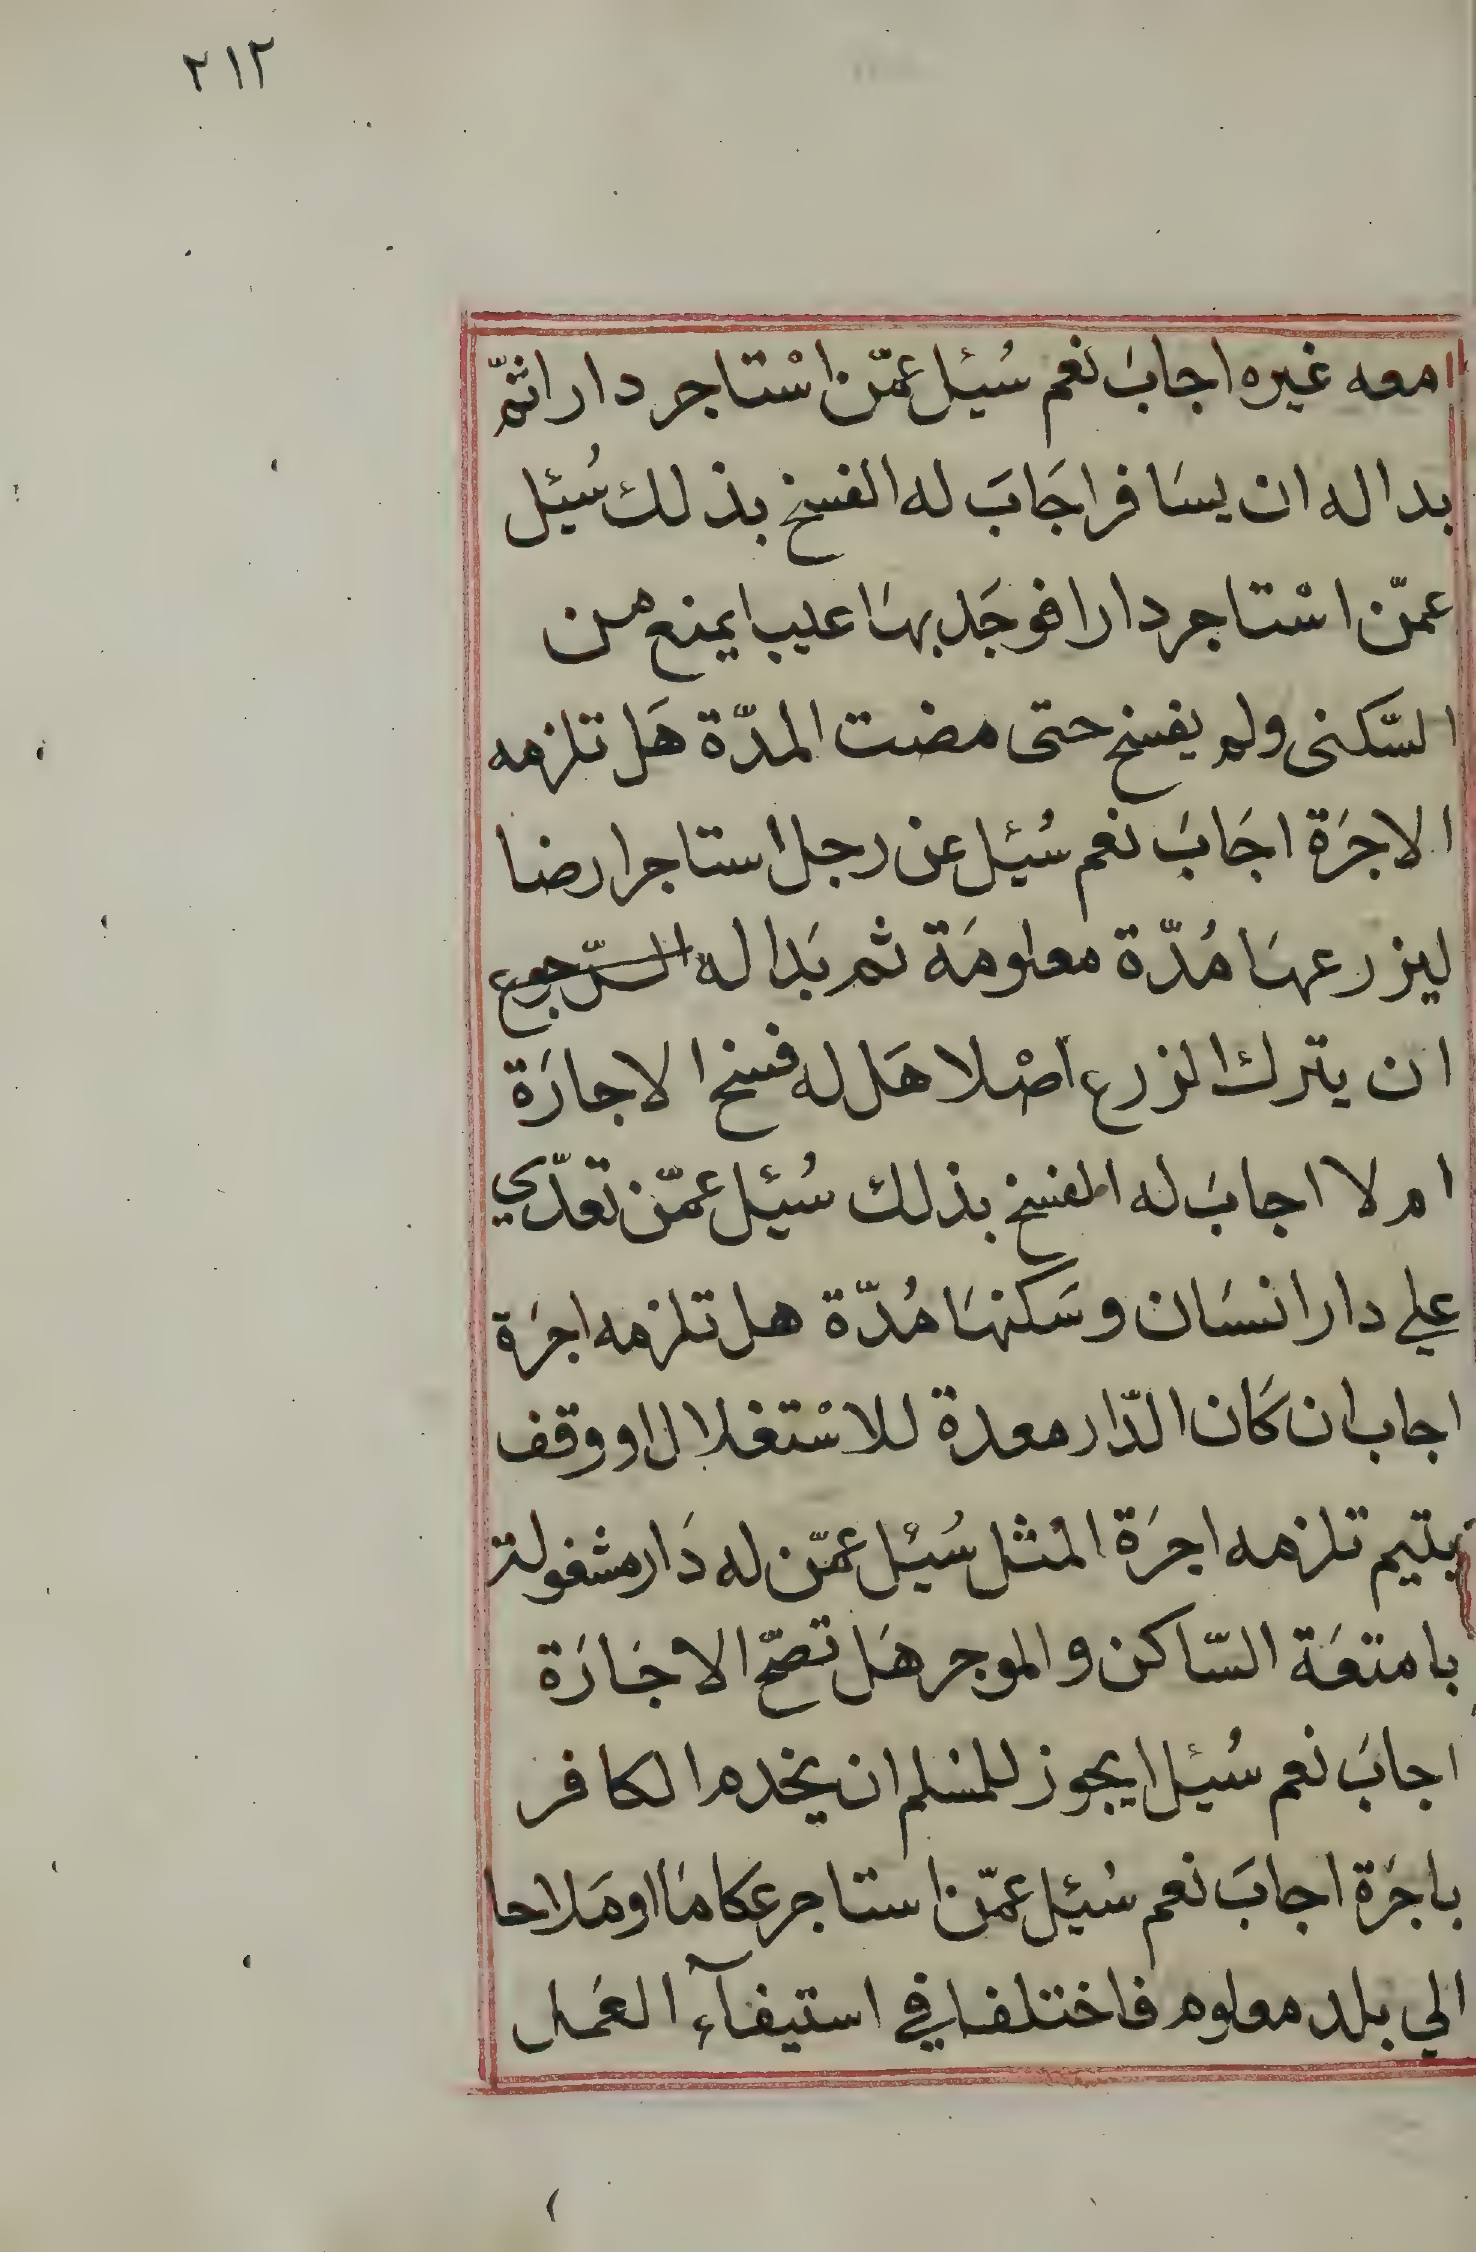 ٢١٢
معه غيره اجابَ نعم سُئِل عمّن اسْتاجر دارا ثمّ
بدا له ان يسَافر اجَابَ له الفسخ بذلك سُئِل
عمّن اسْتاجر دارا فوجَد بهَا عيبا يمنع من
السّكنى ولم يفسخ حتى مضت المدّة هَل تلزمه
الاجرَة اجَابَ نعم سُئِل عن رجل استاجر ارضا
ليزرعهَا مُدّة معلومَة ثم بَدا له الرّجوع
ان يترك الزرع اصْلا هَل له فسخ الاجارَة
ام لا اجابَ له الفسخ بذلك سُئِل عمّن تعدّي
علي دار انسَان وسَكنهَا مُدّة هل تلزمه اجرَة
اجاب ان كَان الدّار معدة للاسْتغلال او وقف
يتيم تلزمه اجرَة المثل سُئِل عمّن له دَار مشغولة
بامتعَة السّاكن والموجر هَل تصحّ الاجَارَة
اجابَ نعم سُئِل ايجوز للمسْلم ان يخدم الكافر
باجرَة اجابَ نعم سُئِل عمّن استاجر عَكامَا او مَلاحا
الي بلد معلوم فاختلفا في استيفآء العَمل